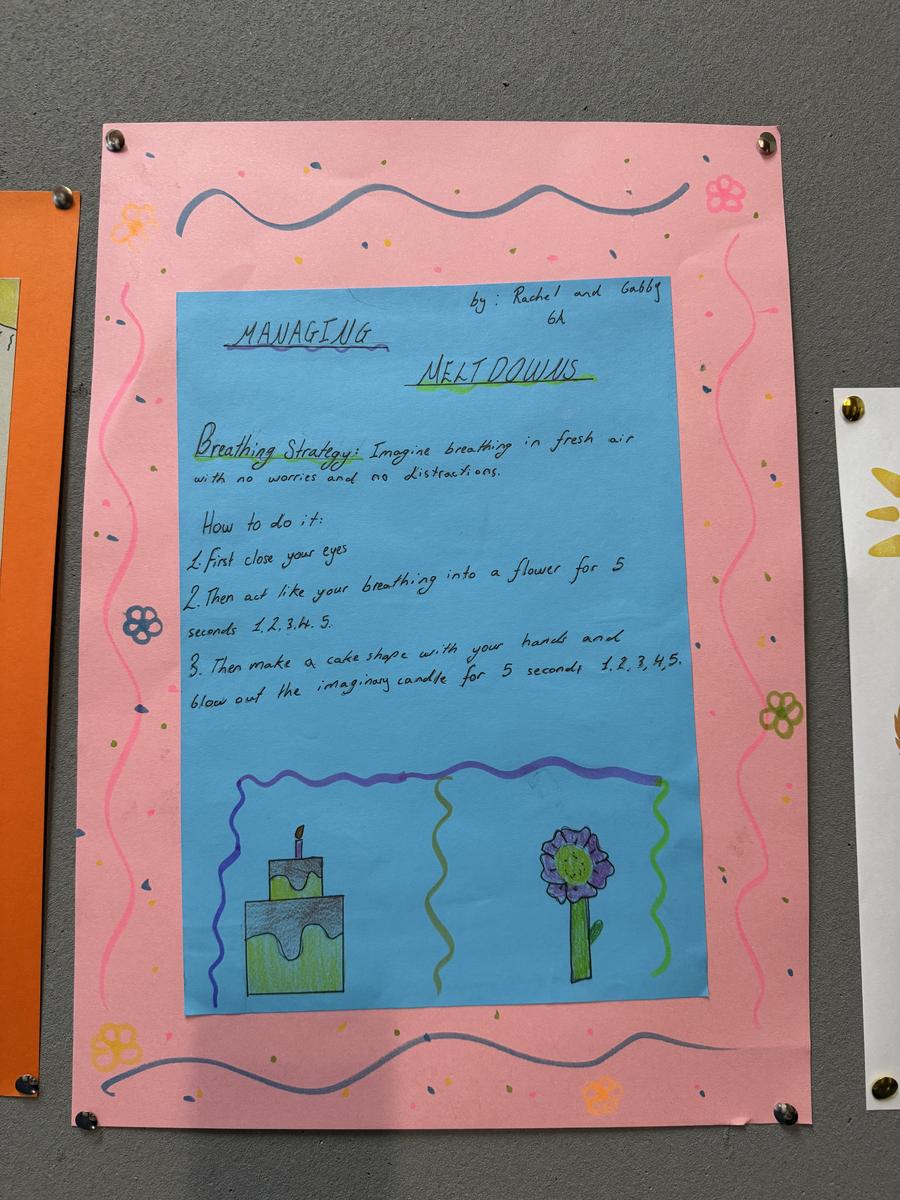 by: Rachel and Gabby
6A
MANAGING
MELTDOWNS
Breathing Strategy: Imagine breathing in fresh air
with no worries and no distractions.
How to do it:
1. First close your eyes
2. Then act like your breathing into a flower for 5
seconds 1,2,3,4,5.
3. Then make a cake shape with your hands and
blow out the imaginary candle for 5 seconds 1,2,3,4,5.